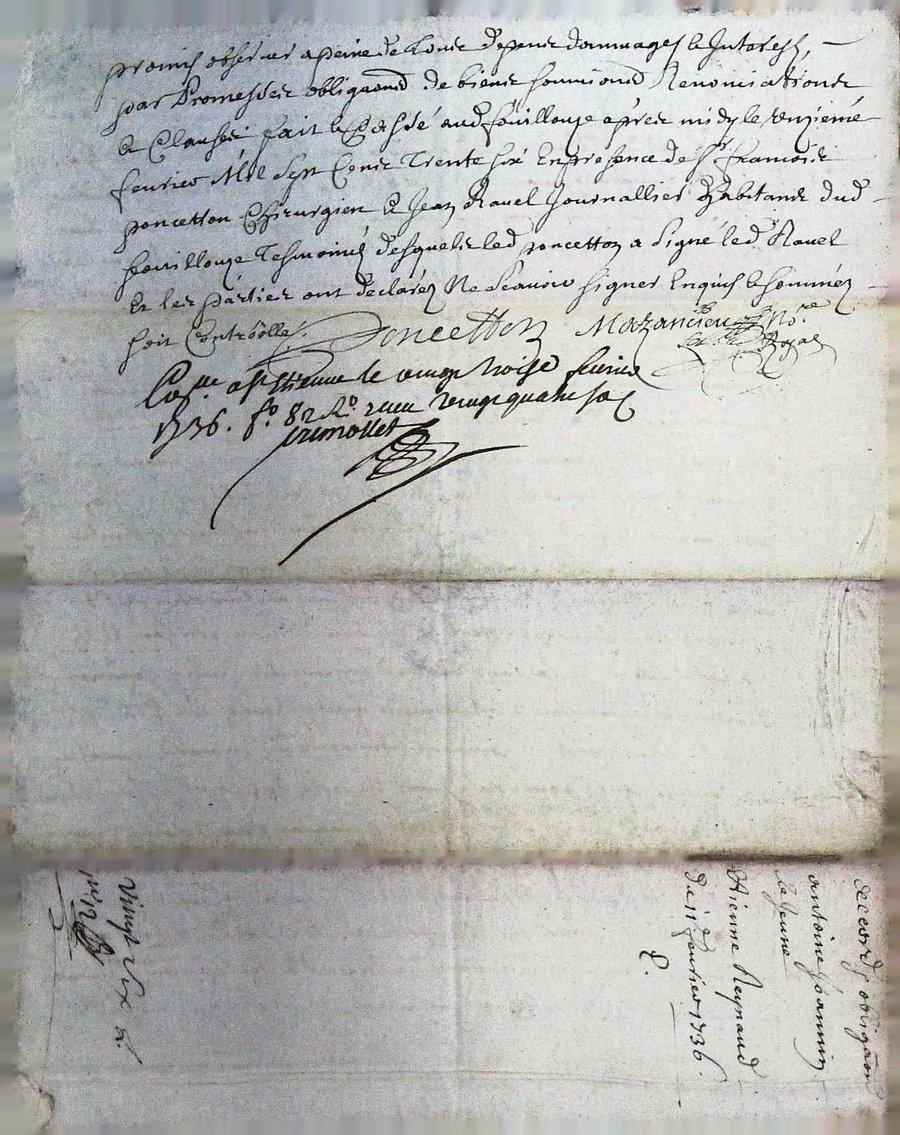 promis observer a peine de tous depens dommages & Intaresty,
par Promesses obligaond de biens soumiond Renonciations
& Clauses fait & Passé aud fouillouze après midy le onzieme
fevrier Mil Sept Cents Trente Six En presence de Sr francois
poncetton Chirurgien & Jean Ravel Journallier Habitants dud
fouillouze Tesmoins desquels led poncetton a Signé led Ravel
Et les parties ont declarés Ne Scavoir Signer Enquis & Sommés
soit Controöllé. Poncetton Mazancieu No.re
Royal
Con.lle a St Etienne le vingt troise fevrier
1736. fo. 82 Ro. recu vingt quatre sols
accord & obligaon
antoine Jeannin
le Jeune
Etienne Reynaud
du 11e fevrier 1736.
Vingt Six